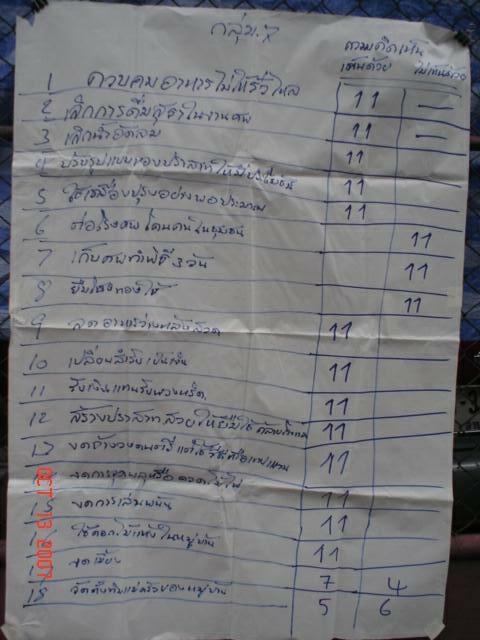 กลุ่ม.7
ความคิดเห็น
เห็นด้วย ไม่เห็นด้วย
1 ควบคุมอาหารไม่ให้รั่วไหล 11 —
2 เลิกการดื่มสุราในงานศพ 11 —
3 เลิกน้ำอัดลม 11
4 ปรับรูปแบบของปราสาทให้มีประโยชน์ 11
5 ใช้เครื่องปรุงอย่างพอประมาณ 11
6 ต่อโรงศพ ในชุมชน 11
7 เก็บศพทำพิธี 3 วัน 11
8 ยืมโลงทองใช้ 11
9 ลดอาหารว่างหลังสวด 11
10 เปลี่ยนสำรับเป็น 11
11 รับเงินแทนรับพวงหรีด 11
12 สร้างปราสาทสวยให้ยืมใช้ 11
13 งดจ้างวงดนตรี แต่ใช้ 11
งดการจุดพลุหรือ ดอกไม้ไฟ 11
15 งดการเล่นพนัน 11
ใช้ดอกไม้แห้งในหมู่บ้าน 11
งดเลี้ยง 7 4
18 จัดตั้งทีมแม่ครัวของหมู่บ้าน 5 6
OCT 13 2007